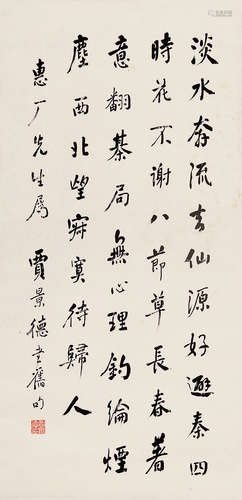 淡水奔流去仙源好避秦四
時花不謝八節草長春著
意翻棊局無心理釣綸煙
塵西北望寂寞待歸人
惠厂先生屬 賈景德書舊句